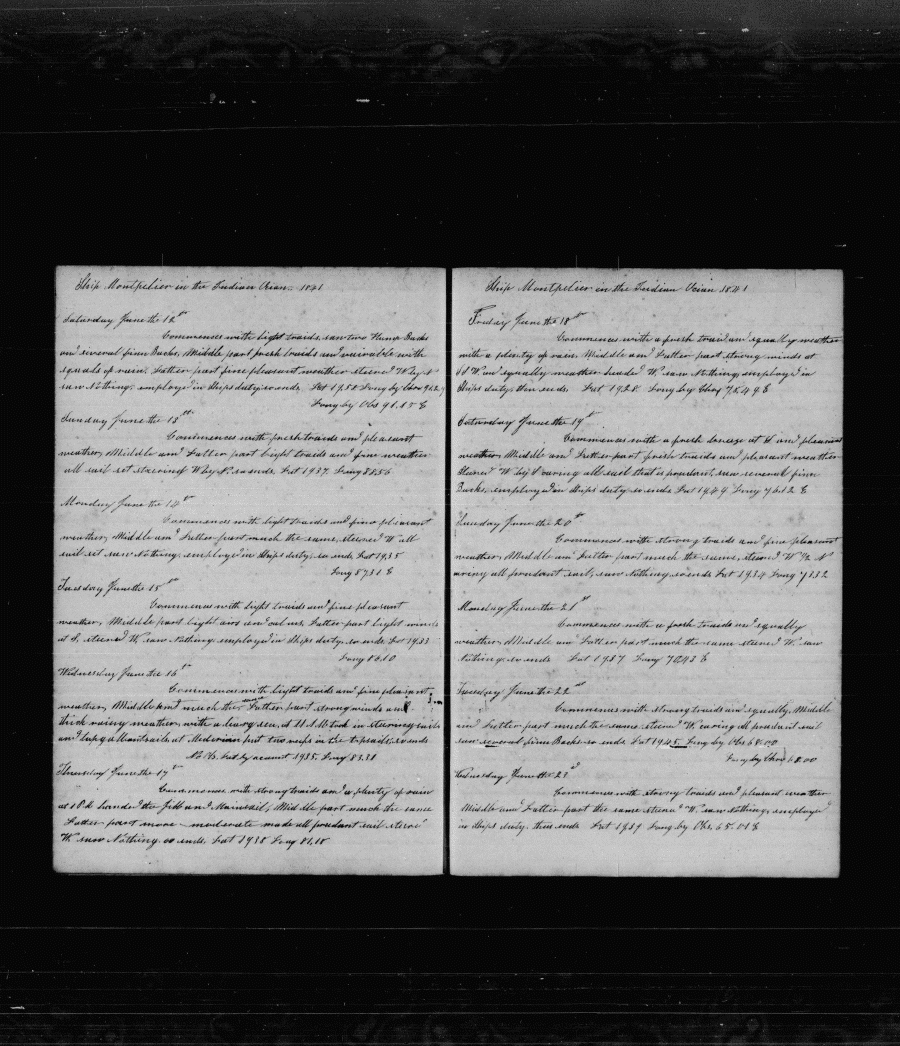 Ship Montpelier in the Indian Ocian 1841
Saturday June the 12th
Commences with light traids, saw two Hump Backs
and several finn Backs, Middle part fresh traids and vairiable with
squals of rain. Latter part fine pleasant weather steerd W by N
saw Nothing, employe'd in Ships duty, so ends. Lat 19.58 Long by Chro 91.2
Long by Obs 91.15 E
Sunday June the 13th
Commences with fresh traids and pleasant
weather, Middle and Latter part light traids and fine weather
all sail set stearing W by N. so ends Lat 19.37 Long 88.56
Monday June the 14th
Commences with light traids and fine pleasant
weather, Middle and Latter part much the same, steered W all
sail set saw Nothing, employe'd in Ships duty, so ends Lat 19.35
Long 87.31 E
Tuesday June the 15th
Commences with light traids and fine pleasant
weather, Middle part light airs and calms, Latter part light winds
at S. steered W. saw Nothing employe'd in Ships duty, so ends Lat 19.33
Long 86.10
Wednesday June the 16th
Commences with light traids and fine pleasant
weather, Middle and much the same Latter part strong winds and
thick rainy weather, with a heavy sea, at took in sterning sails
and at Mederian put two reefs in the topsails, so ends
No Ob. Lat by acount 19.35. Long 83.31
Thursday June the 17th
Commences with strong traids and a plenty of rain
at 10 handed the Jibb and Mainsail, Middle part much the same
Latter part more moderate made all prudant sail steerd
W. saw Nothing so ends, Lat 19.38 Long 81.18
Ship Montpelier in the Indian Ocian 1841
Friday June the 18th
Commences with a fresh traid and squally weather
with a plenty of rain Middle and Latter part strong winds at
and squally weather headed W. saw Nothing, employe'd in
Ships duty, thus ends. Lat 19.28 Long by Chro 78.49 E
Saturday June the 19th
Commences with a fresh breeze at S and pleasant
weather, Middle and Latter part fresh traids and pleasant weather
Steered W by S caring all sail that is prudant, saw several finn
Backs, employe'd in Ships duty so ends Lat 19.49 Long 76.12 E
Sunday June the 20th
Commences with strong traids and fine pleasant
weather, Middle and Latter part much the same, steerd W ½ N
caring all prudant sail, saw Nothing so ends Lat 19.34 Long 73.32
Monday June the 21st
Commences with a fresh traids and squally
weather, Middle and Latter part much the same steerd W. saw
Nothing so ends Lat 19.37 Long 70.43 E
Tuesday June the 22nd
Commences with strong traids and squally, Middle
and Latter part much the same steerd W. caring all prudant sail
saw several finn Backs so ends Lat 19.45 Long by Obs 68.00
Long by Chro 68.00
Wednesday June the 23d
Commences with strong traids and pleasant weather
Middle and Latter part the same steerd W. saw Nothing, employe'd
in Ships duty, thus ends Lat 19.39 Long by Obs. 65.01 E